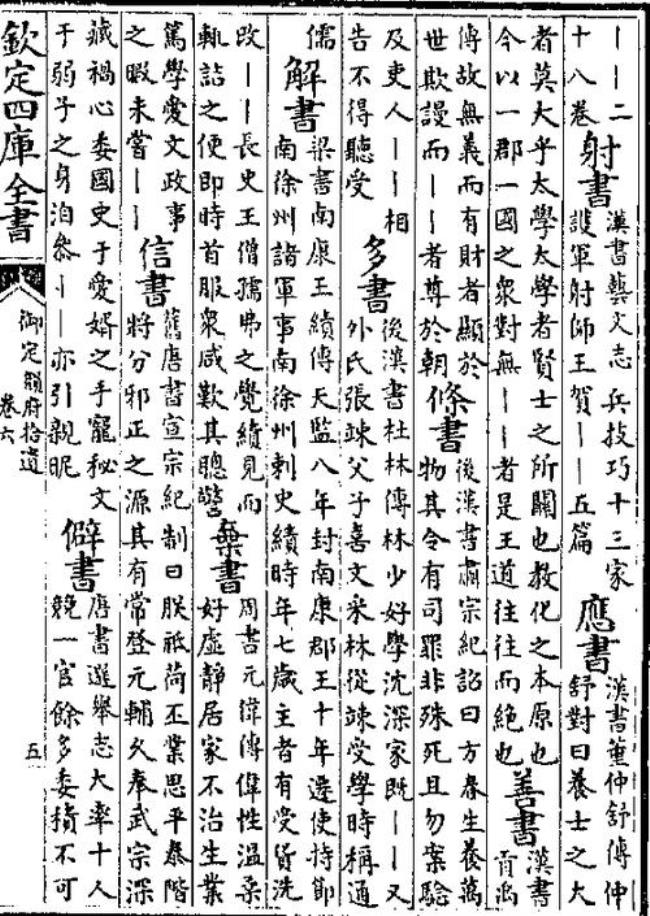 丨丨二
十八卷
射書
漢書藝文志 兵技巧十三家
護軍射師王賀丨丨五篇
應書
漢書董仲舒傳仲
舒對曰養士之大
者莫大乎太學太學者賢士之所關也教化之本原也
今以一郡一國之衆對無丨丨者是王道往往而絶也
善書
漢書
貢禹
傳故無義而有財者顯於
世欺謾而丨丨者尊於朝
條書
後漢書肅宗紀詔曰方春生養萬
物其令有司罪非殊死且勿案驗
及吏人丨丨相
告不得聽受
多書
後漢書杜林傳林少好學沈深家既丨丨又
外氏張竦父子喜文采林從竦受學時稱通
儒
解書
梁書南康王績傳天監八年封南康郡王十年遷使持節
南徐州諸軍事南徐州刺史績時年七歲主者有受貨洗
改丨丨長史王僧孺弗之覺績見而
輒詰之便即時首服衆咸歎其聰警
棄書
周書元偉傳偉性温柔
好虛靜居家不治生業
篤學愛文政事
之暇未嘗丨丨
信書
舊唐書宣宗紀制曰朕祗荷丕業思平泰階
將分邪正之源其有常登元輔久奉武宗深
藏禍心委國史于愛婿之手寵秘文
于弱子之身洎參丨丨亦引親昵
僻書
唐書選舉志大率十人
競一官餘多委積不可
欽定四庫全書
御定韻府拾遺
卷六
五